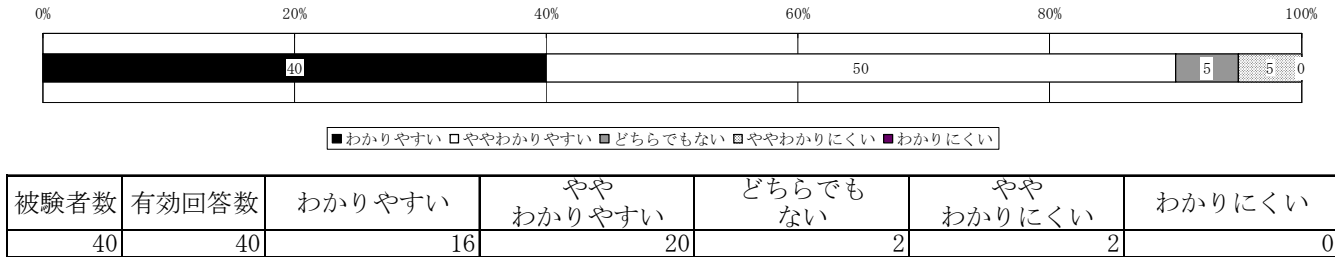 0% 20% 40% 60% 80% 100%
40 50 5 5 0
■わかりやすい □ややわかりやすい ■どちらでもない □ややわかりにくい ■わかりにくい
被験者数 有効回答数 わかりやすい やや わかりやすい どちらでも ない やや わかりにくい わかりにくい
40 40 16 20 2 2 0